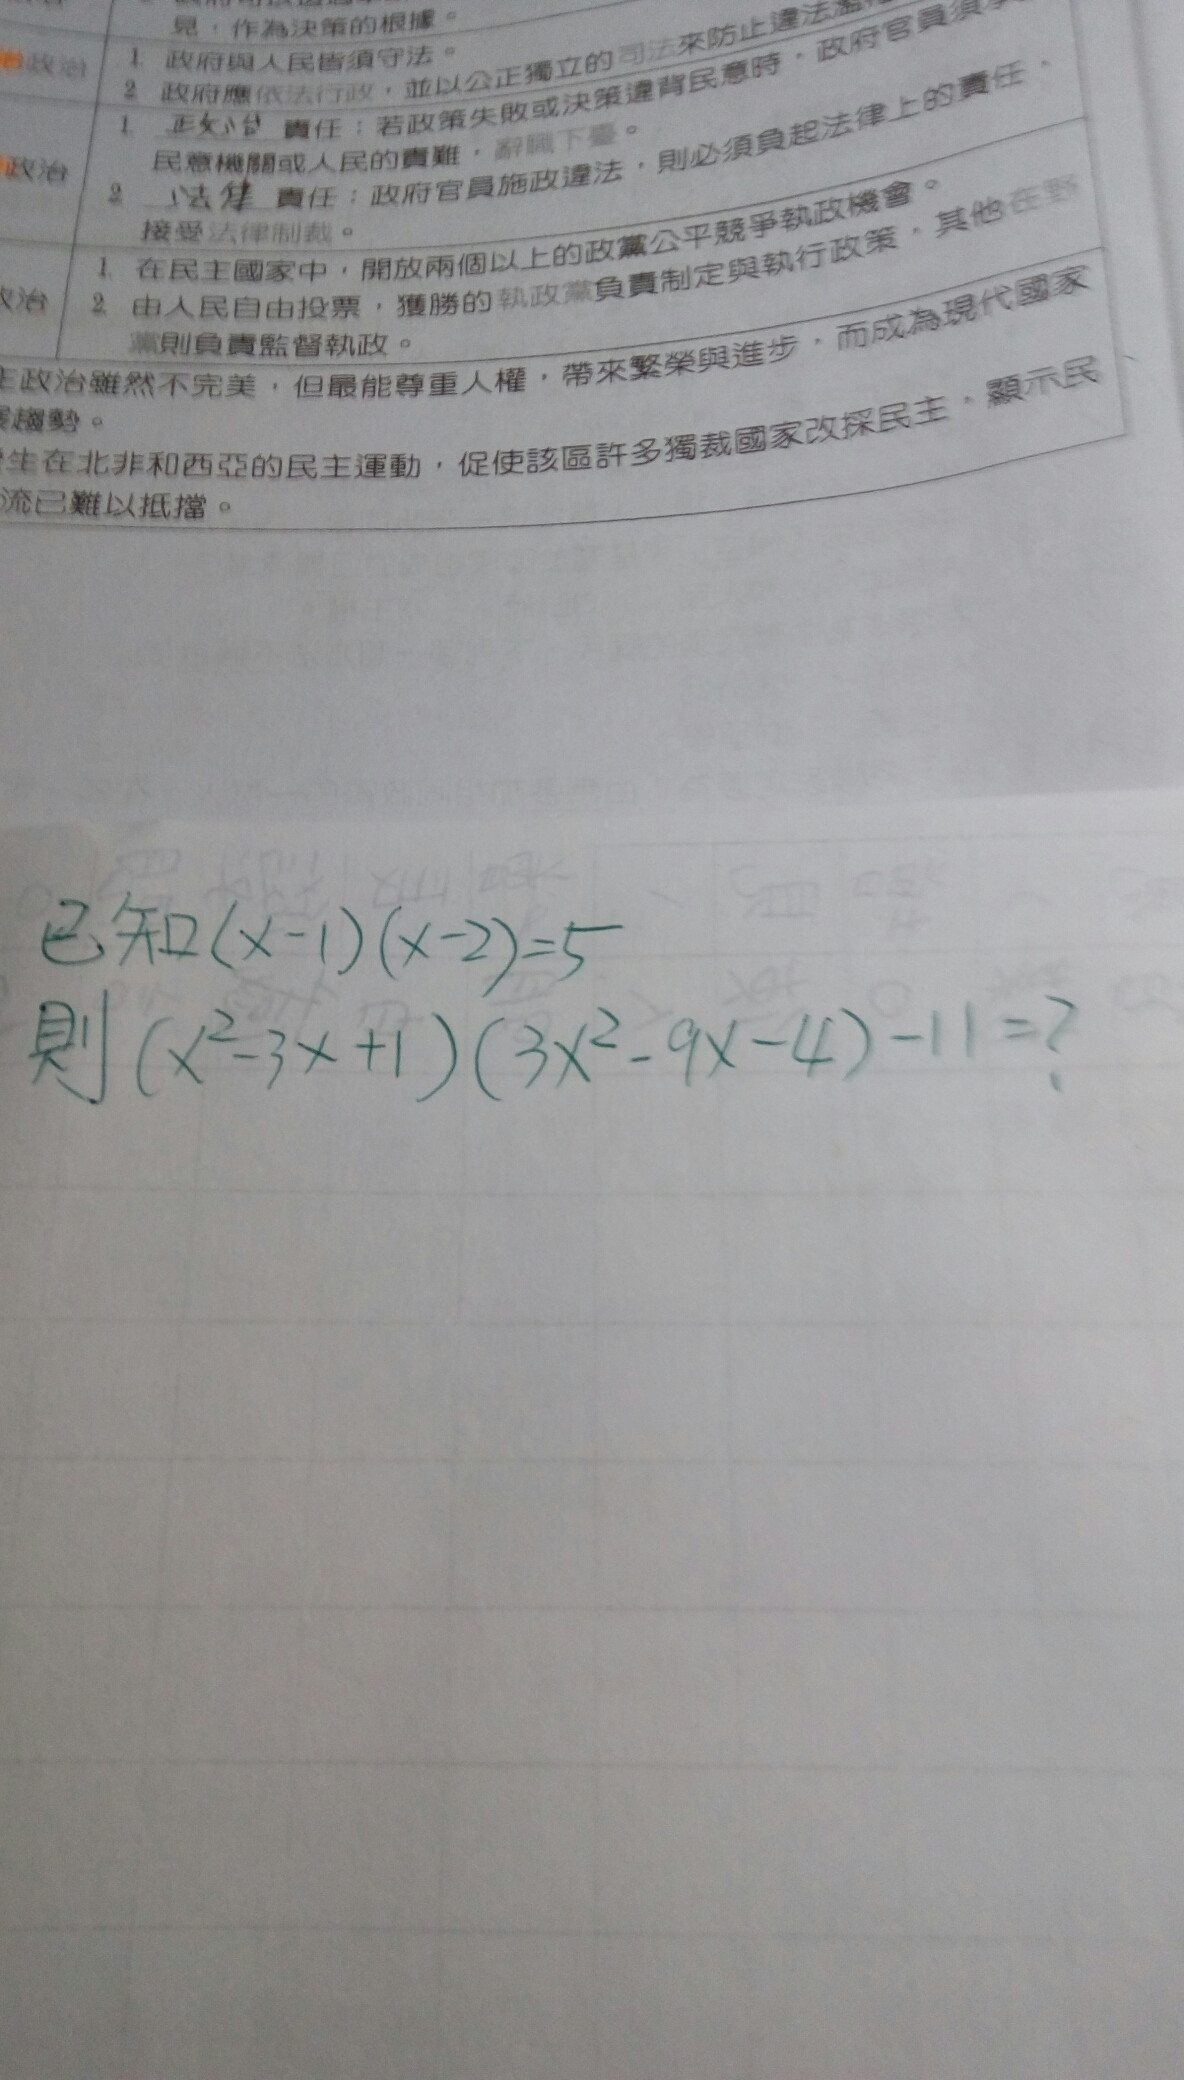 見，作為決策的根據。
政治
1. 政府與人民皆須守法。
2. 政府應依法行政，並以公正獨立的司法來防止違法濫
政治
1. 政治 責任：若政策失敗或決策違背民意時，政府官員須
民意機關或人民的責難，辭職下臺。
2. 法律 責任：政府官員施政違法，則必須負起法律上的責任，
接受法律制裁。
政治
1. 在民主國家中，開放兩個以上的政黨公平競爭執政機會。
2. 由人民自由投票，獲勝的執政黨負責制定與執行政策，其他在野
黨則負責監督執政。
主政治雖然不完美，但最能尊重人權，帶來繁榮與進步，而成為現代國家
展趨勢。
生在北非和西亞的民主運動，促使該區許多獨裁國家改採民主，顯示民
流已難以抵擋。
已知(x-1)(x-2)=5
則(x²-3x+1)(3x²-9x-4)-11=?